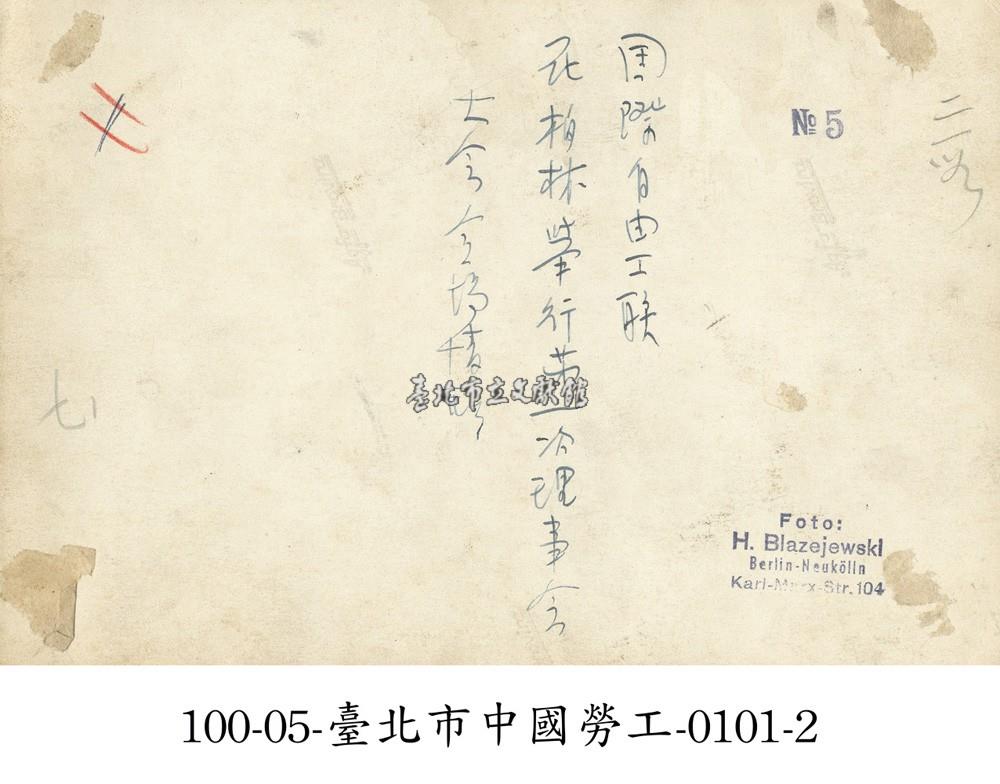 № 5
国際自由工联
在柏林举行第一次理事会
大会会場情形
七
臺北市立文獻館
Foto:
H. Blazejewski
Berlin-Neukölln
Karl-Marx-Str. 104
100-05-臺北市中國勞工-0101-2